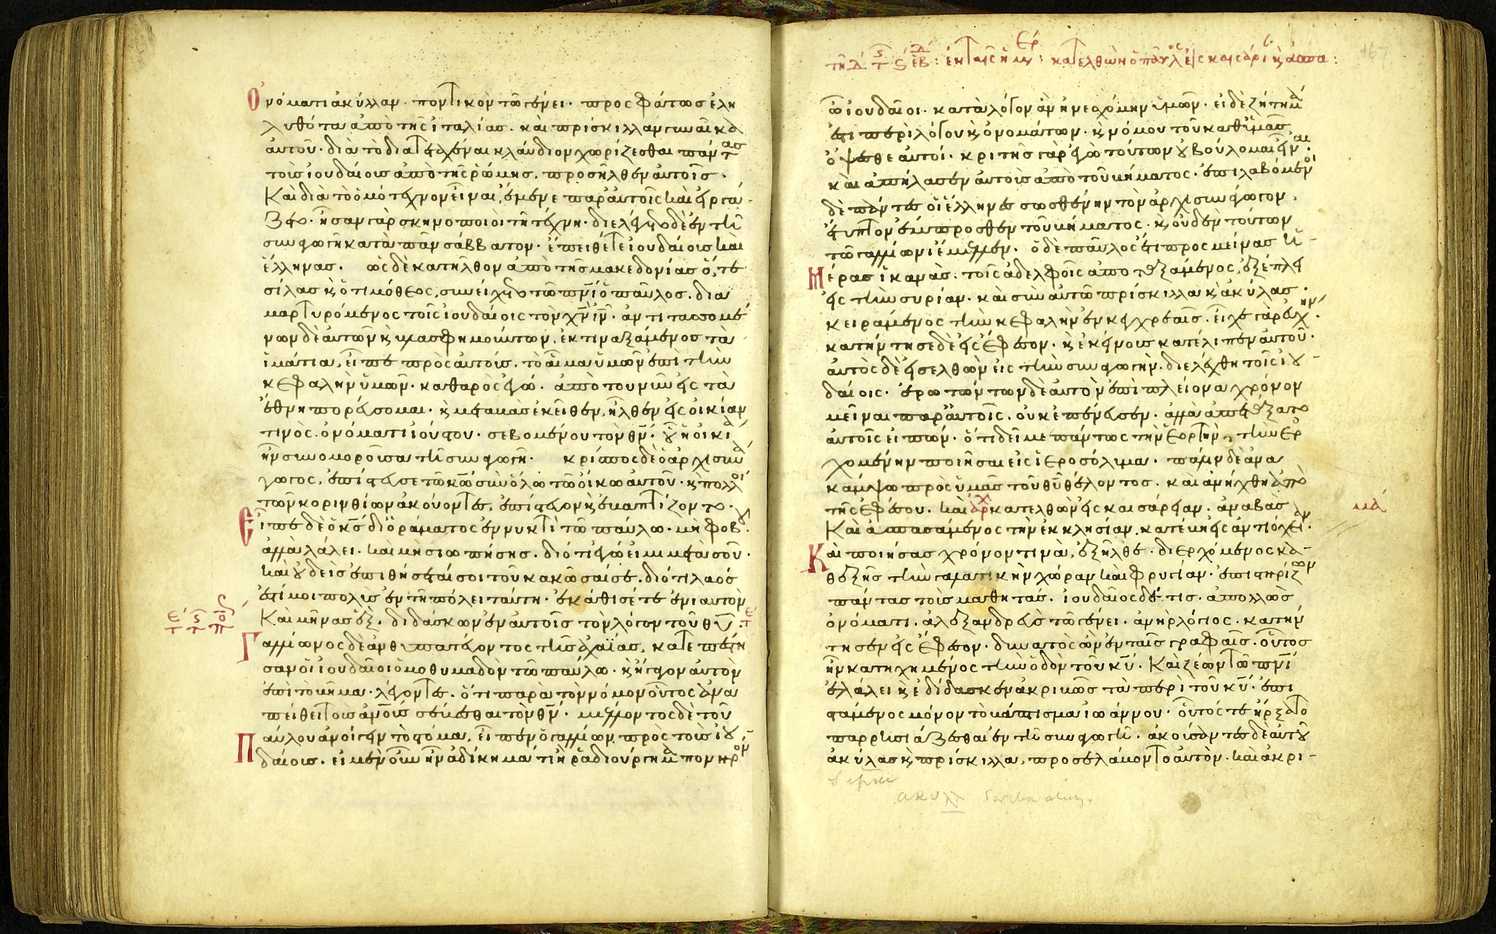 Ὀνόματι ἀκύλαν· ποντικὸν τῶ γένει· προσφάτως ἐλη
λυθότα ἀπὸ τῆς ἰταλίας· καὶ πρίσκιλλαν γυναῖκα
αὐτοῦ· διὰ τὸ διατεταχέναι κλαύδιον χωρίζεσθαι πάντας
τοὺς ἰουδαίους ἀπὸ τῆς ῥώμης· προσῆλθεν αὐτοῖς·
Καὶ διὰ τὸ ὁμότεχνον εἶναι, ἔμενε παρ' αὐτοῖς καὶ εἰργά
ζετο· ἦσαν γὰρ σκηνοποιοὶ τῆ τέχνη· διελέγετο δὲ ἐν τῆ
συναγωγῆ κατὰ πᾶν σάββατον· ἔπειθέ τε ἰουδαίους καὶ
ἕλληνας· ὡς δὲ κατῆλθον ἀπὸ τῆς μακεδονίας ὅ, τε
σίλας κ ὁ τιμόθεος, συνείχετο τῶ πνι ὁ παῦλος· δια
μαρτυρόμενος τοῖς ἰουδαίοις τὸν χν ιν· ἀντιτασσομέ
νων δὲ αὐτῶν κ βλασφημούντων, ἐκτιναξάμενος τὰ
ἱμάτια, εἶπε πρὸς αὐτούς· τὸ αἷμα ὑμῶν ἐπὶ τὴν
κεφαλὴν ὑμῶν· καθαρὸς ἐγώ· ἀπὸ τοῦ νῦν εἰς τὰ
ἔθνη πορεύσομαι· κ μεταβὰς ἐκεῖθεν, ἦλθεν εἰς οἰκίαν
τινὸς· ὀνόματι ἰούστου· σεβομένου τὸν θν· οὗ ἡ οἰκία
ἦν συνομοροῦσα τῆ συναγωγῆ· κρίσπος δὲ ὁ ἀρχισυνά
γωγος, ἐπίστευσε τῶ κω σὺν ὅλω τῶ οἴκω αὐτοῦ· κ πολλοὶ
τῶν κορινθίων ἀκούοντες, ἐπίστευον κ ἐβαπτίζοντο·
Εἶπε δὲ ὁ κς δι' ὁράματος ἐν νυκτὶ τῶ παύλω· μὴ φοβοῦ
ἀλλὰ λάλει· καὶ μὴ σιωπήσης· διότι ἐγώ εἰμι μετὰ σοῦ·
καὶ οὐδεὶς ἐπιθήσεταί σοι τοῦ κακῶσαί σε· διότι λαός
ἐστί μοι πολὺς ἐν τῆ πόλει ταύτη· ἐκάθισέ τε ἐνιαυτὸν
Καὶ μῆνας ἕξ· διδάσκων ἐν αὐτοῖς τὸν λόγον τοῦ θυ·
Γαλλίωνος δὲ ἀνθυπατεύοντος τῆς ἀχαΐας, κατεπέστη
σαν οἱ ἰουδαῖοι ὁμοθυμαδὸν τῶ παύλω· κ ἤγαγον αὐτὸν
ἐπὶ τὸ βῆμα· λέγοντες· ὅτι παρὰ τὸν νόμον οὗτος ἀνα
πείθει τοὺς ανους σέβεσθαι τὸν θν· μέλλοντος δὲ τοῦ
παύλου ἀνοίγειν τὸ στόμα, εἶπεν ὁ γαλλίων πρὸς τοὺς ἰου
δαίους· εἰ μὲν οὖν ἦν ἀδίκημά τι ἢ ῥαδιούργημα πονηρὸν
ὦ ἰουδαῖοι· κατὰ λόγον ἂν ἠνεσχόμην ὑμῶν· εἰ δὲ ζήτημά
ἐστι περὶ λόγου κ ὀνομάτων· κ νόμου τοῦ καθ' ὑμᾶς
ὄψεσθε αὐτοί· κριτὴς γὰρ ἐγὼ τούτων οὐ βούλομαι εἶναι·
καὶ ἀπήλασεν αὐτοὺς ἀπὸ τοῦ βήματος· ἐπιλαβόμενοι
δὲ πάντες οἱ ἕλληνες σωσθένην τὸν ἀρχισυνάγωγον,
ἔτυπτον ἔμπροσθεν τοῦ βήματος· κ οὐδὲν τούτων
τῶ γαλλίωνι ἔμελλεν· ὁ δὲ παῦλος ἔτι προσμείνας ἡ
μέρας ἱκανὰς· τοῖς ἀδελφοῖς ἀποταξάμενος, ἐξέπλει
εἰς τὴν συρίαν· καὶ σὺν αὐτῶ πρίσκιλλα κ ἀκύλας·
κειράμενος τὴν κεφαλὴν ἐν κεγχρεαῖς· εἶχε γὰρ εὐχήν·
κατήντησε δὲ εἰς ἔφεσον· κ ἐκείνους κατέλιπεν αὐτοῦ·
αὐτὸς δὲ εἰσελθὼν εἰς τὴν συναγωγὴν, διελέχθη τοῖς ἰου
δαίοις· ἐρωτώντων δὲ αὐτὸν ἐπὶ πλείονα χρόνον
μεῖναι παρ' αὐτοῖς, οὐκ ἐπένευσεν· ἀλλὰ ἀπετάξατο
αὐτοῖς εἰπών· ὅτι δεῖ με πάντως τὴν ἑορτὴν, τὴν ἐρ
χομένην ποιῆσαι εἰς ἱεροσόλυμα· πάλιν δὲ ἀνα
κάμψω πρὸς ὑμᾶς τοῦ θυ θέλοντος· καὶ ἀνήχθη ἀπὸ
τῆς ἐφέσου· καὶ κατελθὼν εἰς καισάρειαν· ἀναβὰς
Καὶ ἀσπασάμενος τὴν ἐκκλησίαν, κατέβη εἰς ἀντιόχειαν·
Καὶ ποιήσας χρόνον τινὰ, ἐξῆλθε· διερχόμενος κα
θεξῆς τὴν γαλατικὴν χώραν καὶ φρυγίαν· ἐπιστηρίζων
πάντας τοὺς μαθητάς· ἰουδαῖος δέ τις· ἀπολλὼς
ὀνόματι· ἀλεξανδρεὺς τῶ γένει· ἀνὴρ λόγιος· κατήν
τησεν εἰς ἔφεσον· δυνατὸς ὢν ἐν ταῖς γραφαῖς· οὗτος
ἦν κατηχημένος τὴν ὁδὸν τοῦ κυ· Καὶ ζέων τῶ πνι
ἐλάλει κ ἐδίδασκεν ἀκριβῶς τὰ περὶ τοῦ κυ· ἐπι
στάμενος μόνον τὸ βάπτισμα ἰωάννου· οὗτός τε ἤρξατο
παρρησιάζεσθαι ἐν τῆ συναγωγῆ· ἀκούσαντες δὲ αὐτοῦ
ἀκύλας κ πρίσκιλλα, προσελάβοντο αὐτὸν· καὶ ἀκρι